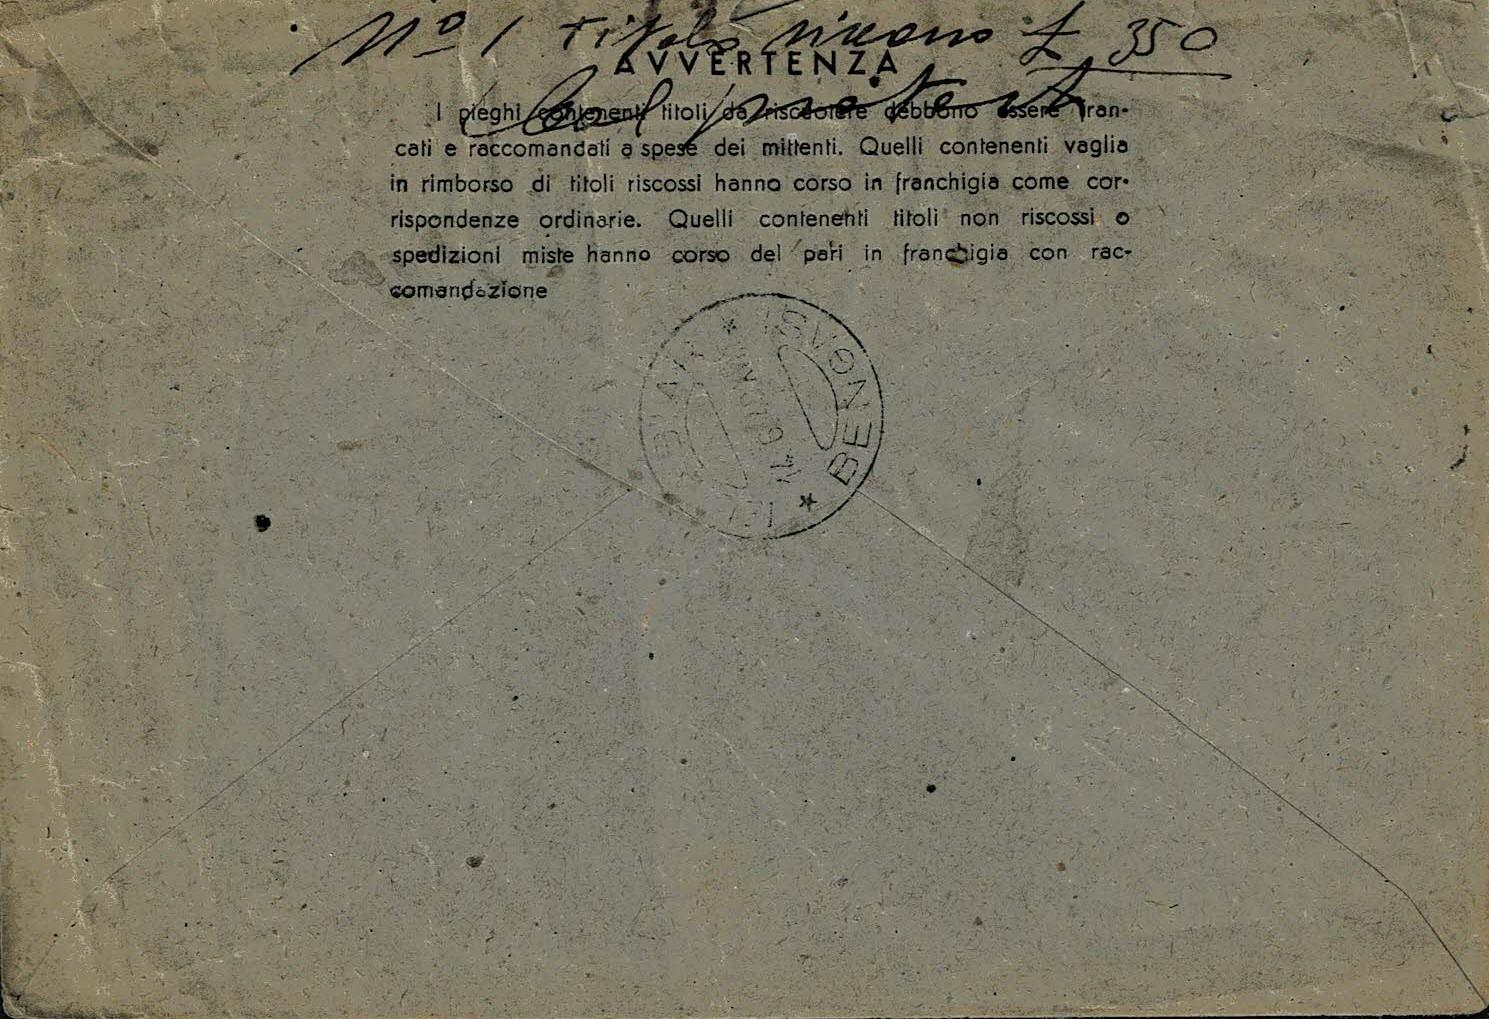 Nº 1 titolo £ 350
AVVERTENZA
I pieghi contenenti titoli da riscuotere debbono essere fran-
cati e raccomandati a spese dei mittenti. Quelli contenenti vaglia
in rimborso di titoli riscossi hanno corso in franchigia come cor-
rispondenze ordinarie. Quelli contenenti titoli non riscossi o
spedizioni miste hanno corso del pari in franchigia con rac-
comandazione
BENGASI